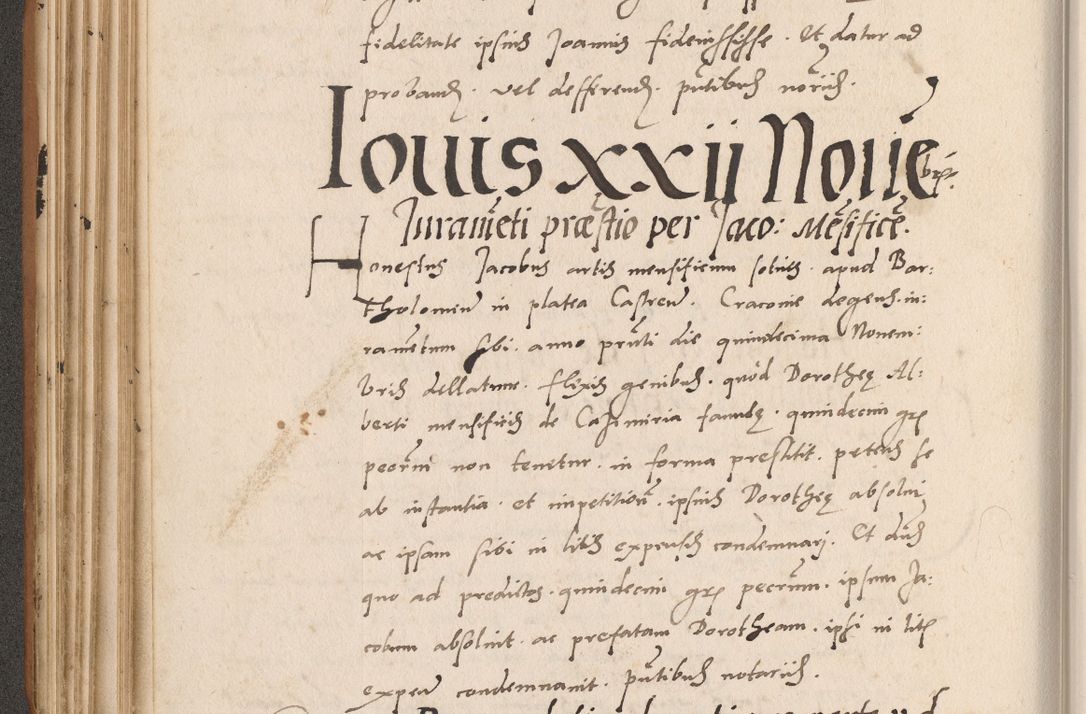 fidelitate ipsius Joannis fidenssisse . Et datur ad
proband. vel defferend. pntibus noriis.
Iouis xxii Nouēbr.
Iuramēti præstio per Jaco: Mēsificē.
Honestus Jacobus artis mensificum sotius . apud Bar:
tholomeum in platea Castren. Cracovie degens. iu:
ramētum sibi . anno prnti die quindecima Novem:
bris dellatum . flexis genibus . quod Dorotheę Al:
berti mensificis de Casimiria famulę . quindecim grs
pecuni non tenetur . in forma prestitit . petens se
ab instantia . et impetitioē . ipsius Dorotheę absolui
ac ipsam sibi in litis expensis condemnari . Et dns
quo ad predictos . quindecim grs pecuni . ipsum Ja:
cobum absoluit . ac prefatam Dorotheam . ipsi in litis
expen condemnauit . pntibus notariis .